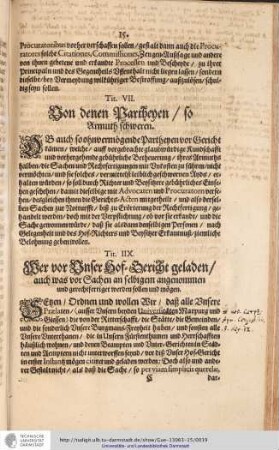 15.
Procuratoribus vorher verschaffen sollen / gestalt dann auch die Procu-
ratores solche Citationes, Commissiones, Zeugen-Aussage und andere
von ihnen gebetene und erkandte Processen und Bescheyde / zu ihrer
Principaln und des Gegentheils nicht liegen lassen / sondern
dieselbe / bey Vermeydung willkühriger Bestraffung / außzulösen / schul-
dig seyn sollen.
Tit. VII.
Von denen Partheyen / so
Armuth schweren.
OB auch so ohnvermögende Partheyen vor Gericht
kämen / welche / auff vorgebrachte glaubwürdige Kundschafft
und vorhergehende gebührliche Betheurung / ihres Armuths
halben / die Sachen und Rechtfertigungen mit
möchten / und sie solches / vermittelst leiblich geschwornen Ayds / er-
halten würden / so soll durch Richter und Beysitzere gebührliches Einse-
hen geschehen / damit dieselbige mit Advocaten und Procuratoren versee-
hen / deßgleichen ihnen die Gerichts-Acten mitgetheilt / und also derosel-
ben Sachen zur Notturfft / biß zu Erörterung der Rechtfertigung / ge-
handelt werden / doch mit der Verpflichtung / ob vor sie erkandt / und die
Sache gewonnen würde / daß sie alsdann denselbigen Personen / nach
Gelegenheit und des Hof-Richters und Beysitzer Erkantnuß / ziemliche
Belohnung geben wollen.
Tit. IIX.
Wer vor Unser Hof-Gericht geladen /
auch was vor Sachen an selbigem angenommen
und gerechtfertiget werden sollen und mögen.
SEtzen / Ordnen und wollen Wir / daß alle Unsere
Prælaten / (ausser Unsern beyden Universitäten Marpurg und
Giessen / die von der Ritterschafft / die Stätte / die Gemeinden /
und die sonderlich Unsere Burgmans-Freyheit haben / und sonsten alle
Unsere Unterthanen / die in Unsern Fürstenthumen und Herrschafften
häußlich wohnen / und denen Beampten und Unter-Gerichten in Städ-
ten und Aemptern nicht unterworffen seynd / vor diß Unser Hof-Gericht
in erster Instantz mögen citirt und geladen werden: Doch also und ande-
rer Gestalt nicht / als daß die Sache / so per viam simplicis querelæ,
dar-
TECHNISCHE
UNIVERSITÄT
DARMSTADT
http://tudigit.ulb.tu-darmstadt.de/show/Gue-11061-15/0019
Universitäts- und Landesbibliothek Darmstadt